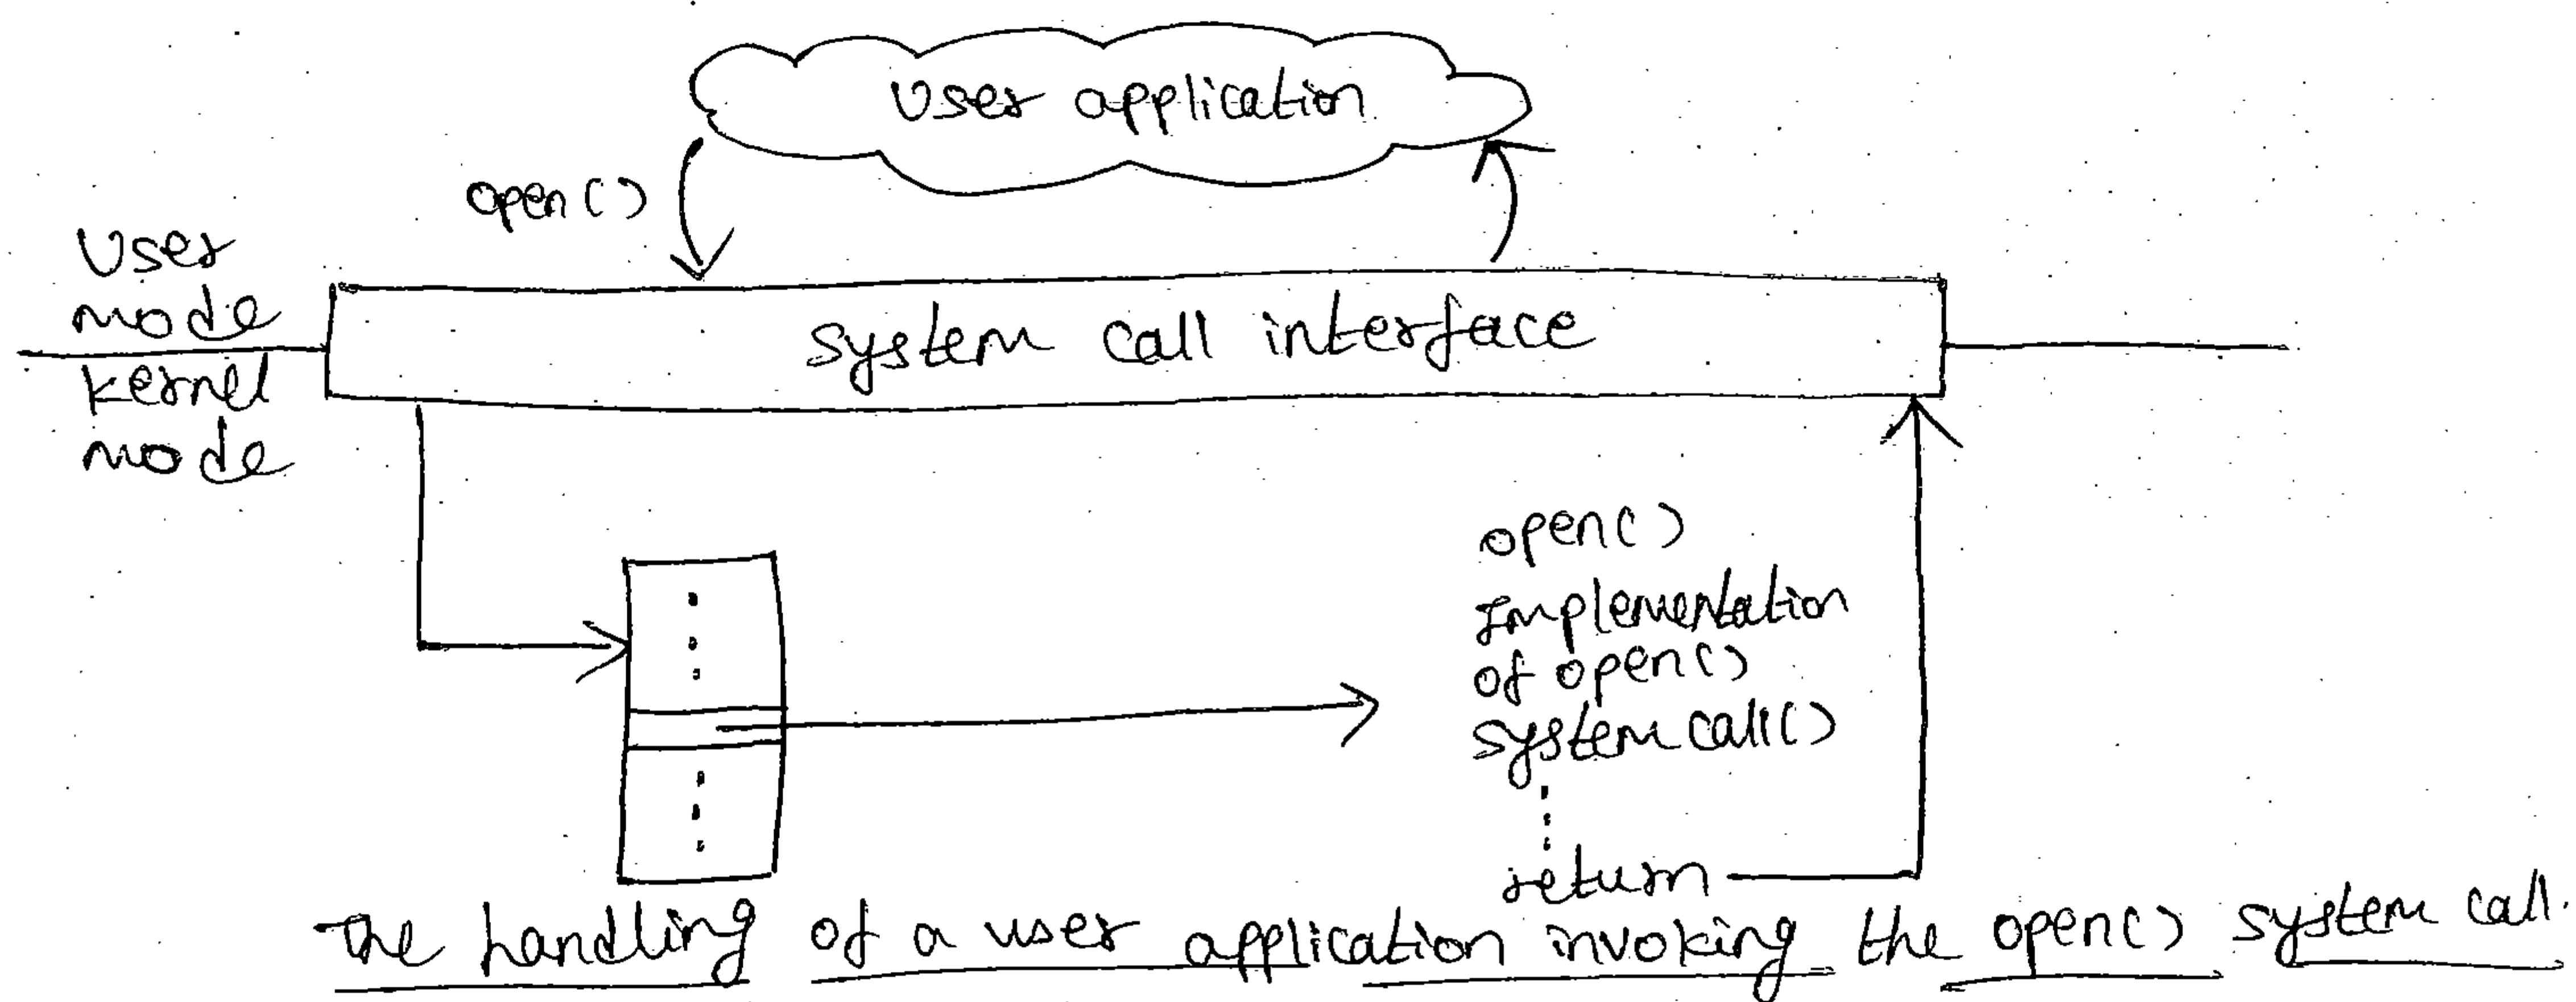 User application
open()
User
mode
system call interface
kernel
mode
open()
Implementation
of open()
system call()
return
The handling of a user application invoking the open() system call.